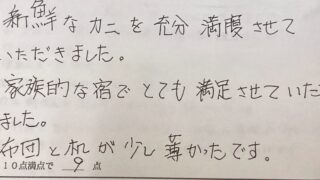 新鮮なカニを充分満腹させて
いただきました。
家族的な宿でとても満足させていた
ました。
布団と机が少し薄かったです。
10点満点で 9 点